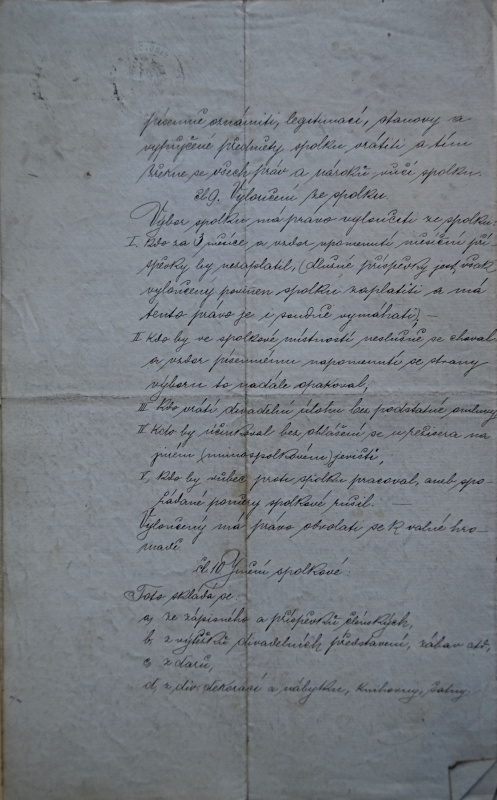 písemně oznámiti, legitimaci, stanovy a
vypůjčené předměty spolku vrátiti a tím
zřekne se všech práv a nároků vůči spolku.
čl. 9. Vyloučení ze spolku.
Výbor spolku má právo vyloučiti ze spolku:
I. Kdo za 3 měsíce a vzdor upomenutí měsíční pří
spěvky by nezaplatil, (dlužné příspěvky jest však
vyloučený povinen spolku zaplatiti a má
tento právo je i soudně vymáhati), –
II. Kdo by ve spolkové místnosti neslušně se choval
a vzdor písemnému napomenutí se strany
výboru to nadále opakoval,
III. Kdo vrátí divadelní úlohu bez podstatné omluvy
IV. Kdo by účinkoval bez ohlášení se u režisera na
jiném (mimospolkovém) jevišti,
V. Kdo by vůbec proti spolku pracoval, aneb spo-
řádané poměry spolkové rušil. –
Vyloučený má právo odvolati se k valné hro-
madě.
čl. 10 Jmění spolkové.
Toto skládá se
a, ze zápisného a příspěvků členských,
b, z výtěžků divadelních představení, zábav atd,
c, z darů,
d, z div. dekorací a nábytku, knihovny, šatny